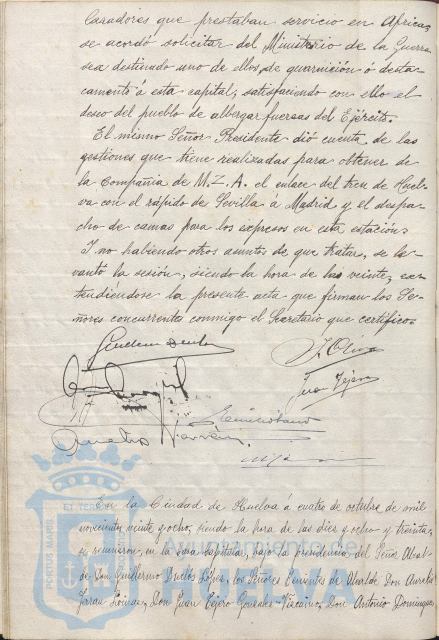 Cazadores que prestaban servicio en Africa,
se acordó solicitar del Ministerio de la Guerra
sea destinado uno de ellos, de guarnición ó desta-
camento á esta capital, satisfaciendo con ello el
deseo del pueblo de albergar fuerzas del Ejército.
El mismo Señor Presidente dió cuenta de las
gestiones que tiene realizadas para obtener de
la Compañia de M.Z.A. el enlace del tren de Huel-
va con el rápido de Sevilla á Madrid y el despa-
cho de camas para los expresos en esta estación.
Y no habiendo otros asuntos de que tratar, se le-
vantó la sesión, siendo la hora de las veinte, ex-
tendiéndose la presente acta que firman los Se-
ñores concurrentes conmigo el Secretario que certifico.
Juan Tejero
En la Ciudad de Huelva á cuatro de octubre de mil
novecientos veinte y ocho, siendo la hora de las diez y ocho y treinta,
se reunieron, en la sala capitular, bajo la presidencia del Señor Alcal-
de Don Guillermo Duclós López, los Señores Tenientes de Alcalde Don Aurelio
Don Juan Tejero Gonzalez-Vizcaino, Don Antonio Dominguez
Ayuntamiento de
HUELVA
PORTUS MARIS
ET TERRÆ